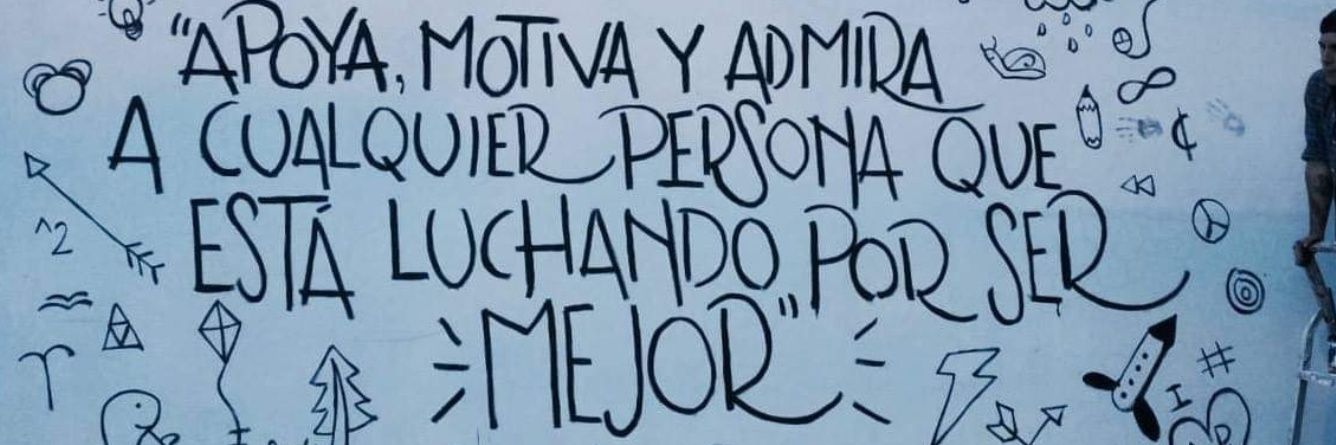 "APOYA, MOTIVA Y ADMIRA
A CUALQUIER PERSONA QUE
ESTÁ LUCHANDO POR SER
MEJOR"
^2
¢
#
I